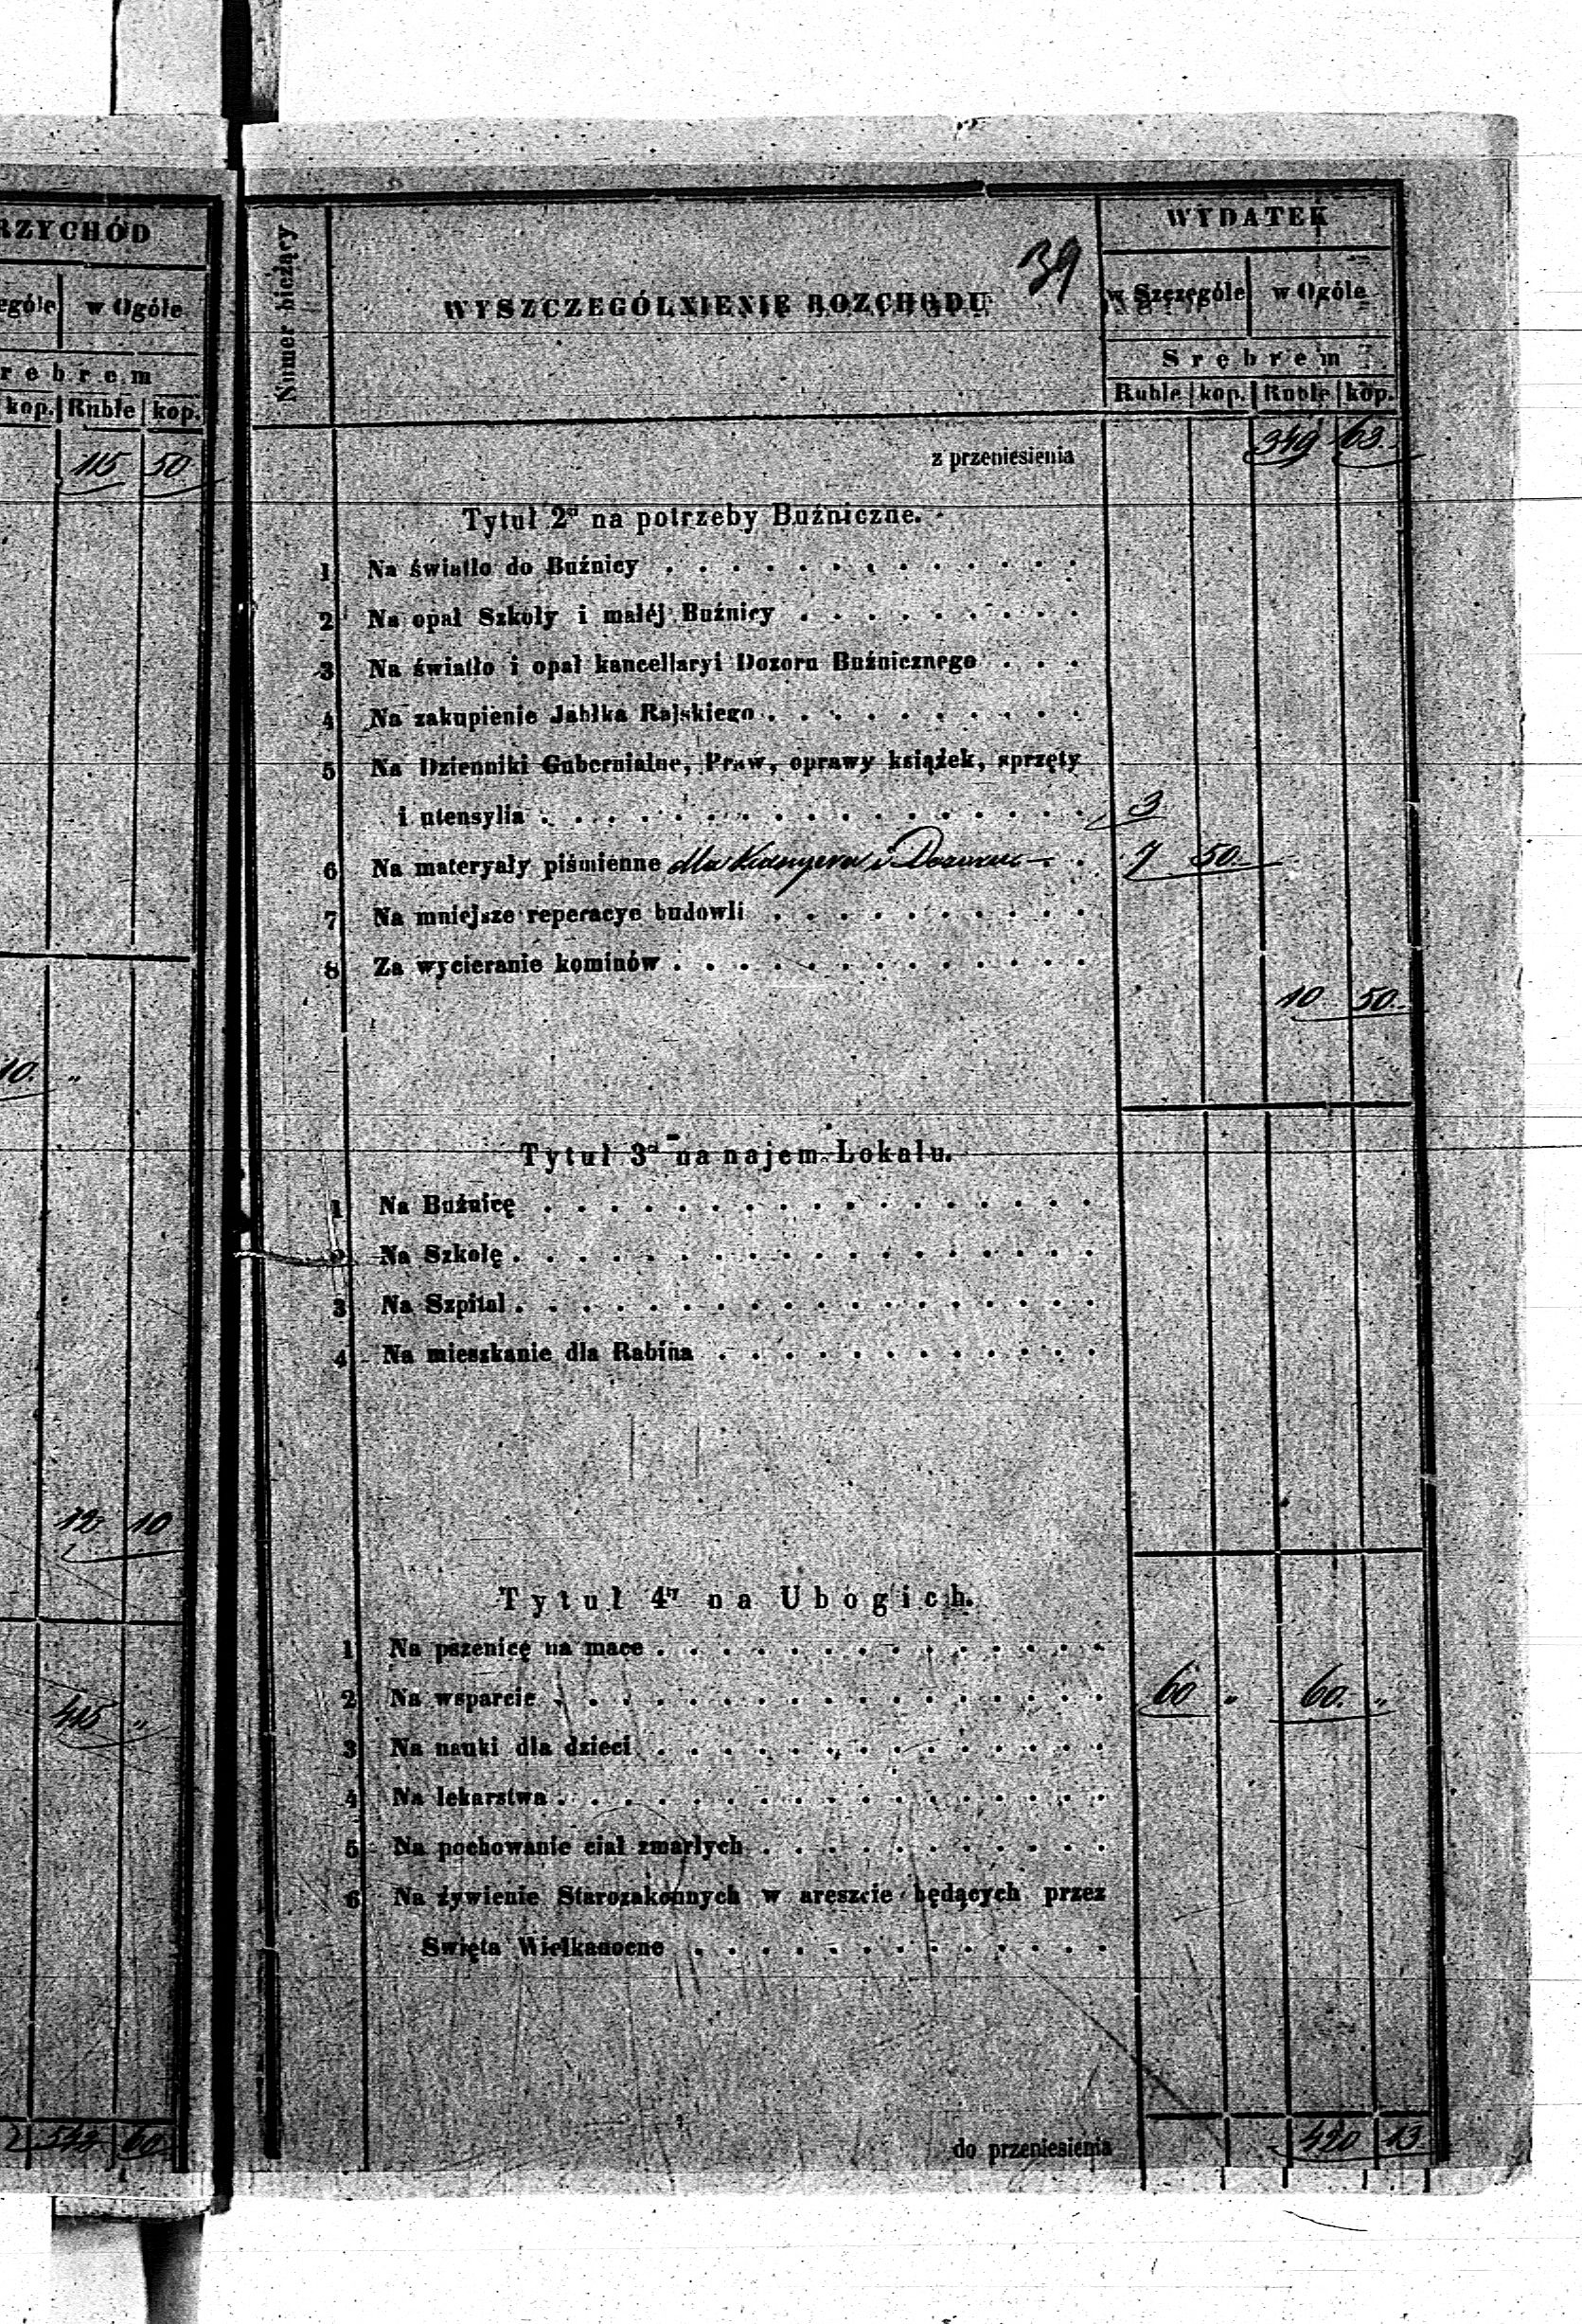 RZYCHÓD
ególe w Ogóle
rebrem
kop. Ruble kop.
115 50
10. „
12 10
415 „
2 542 60
39
Numer bieżący
WYSZCZEGÓLNIENIE ROZCHODU
WYDATEK
w Szczególe w Ogóle
Srebrem
Ruble kop. Ruble kop.
z przeniesienia 349 63.
Tytuł 2ⁱ na potrzeby Buźniczne.
1 Na światło do Buźnicy . . . . . . . . . . . . .
2 Na opał Szkoły i małéj Buźnicy . . . . . . . . .
3 Na światło i opał kancellaryi Dozoru Buźnicznego . . .
4 Na zakupienie Jabłka Rajskiego . . . . . . . . . .
5 Na Dzienniki Gubernialne, Praw, oprawy książek, sprzęty
i utensylia . . . . . . . . . . . . . . . . . 3
6 Na materyały piśmienne dla Kassyera i Dozoru — . 7 50.
7 Na mniejsze reperacye budowli . . . . . . . . . .
8 Za wycieranie kominów . . . . . . . . . . . . .
10 50.
Tytuł 3ⁱ na najem Lokalu.
1 Na Buźnicę . . . . . . . . . . . . . . . . .
2 Na Szkołę . . . . . . . . . . . . . . . . . .
3 Na Szpital . . . . . . . . . . . . . . . . . .
4 Na mieszkanie dla Rabina . . . . . . . . . . . .
Tytuł 4ʸ na Ubogich.
1 Na pszenicę na mace . . . . . . . . . . . . . .
2 Na wsparcie . . . . . . . . . . . . . . . . . 60 „ 60. „
3 Na nauki dla dzieci . . . . . . . . . . . . . .
4 Na lekarstwa . . . . . . . . . . . . . . . . .
5 Na pochowanie ciał zmarłych . . . . . . . . . . .
6 Na żywienie Starozakonnych w areszcie będących przez
Swięta Wielkanocne . . . . . . . . . . . . .
do przeniesienia 420 13